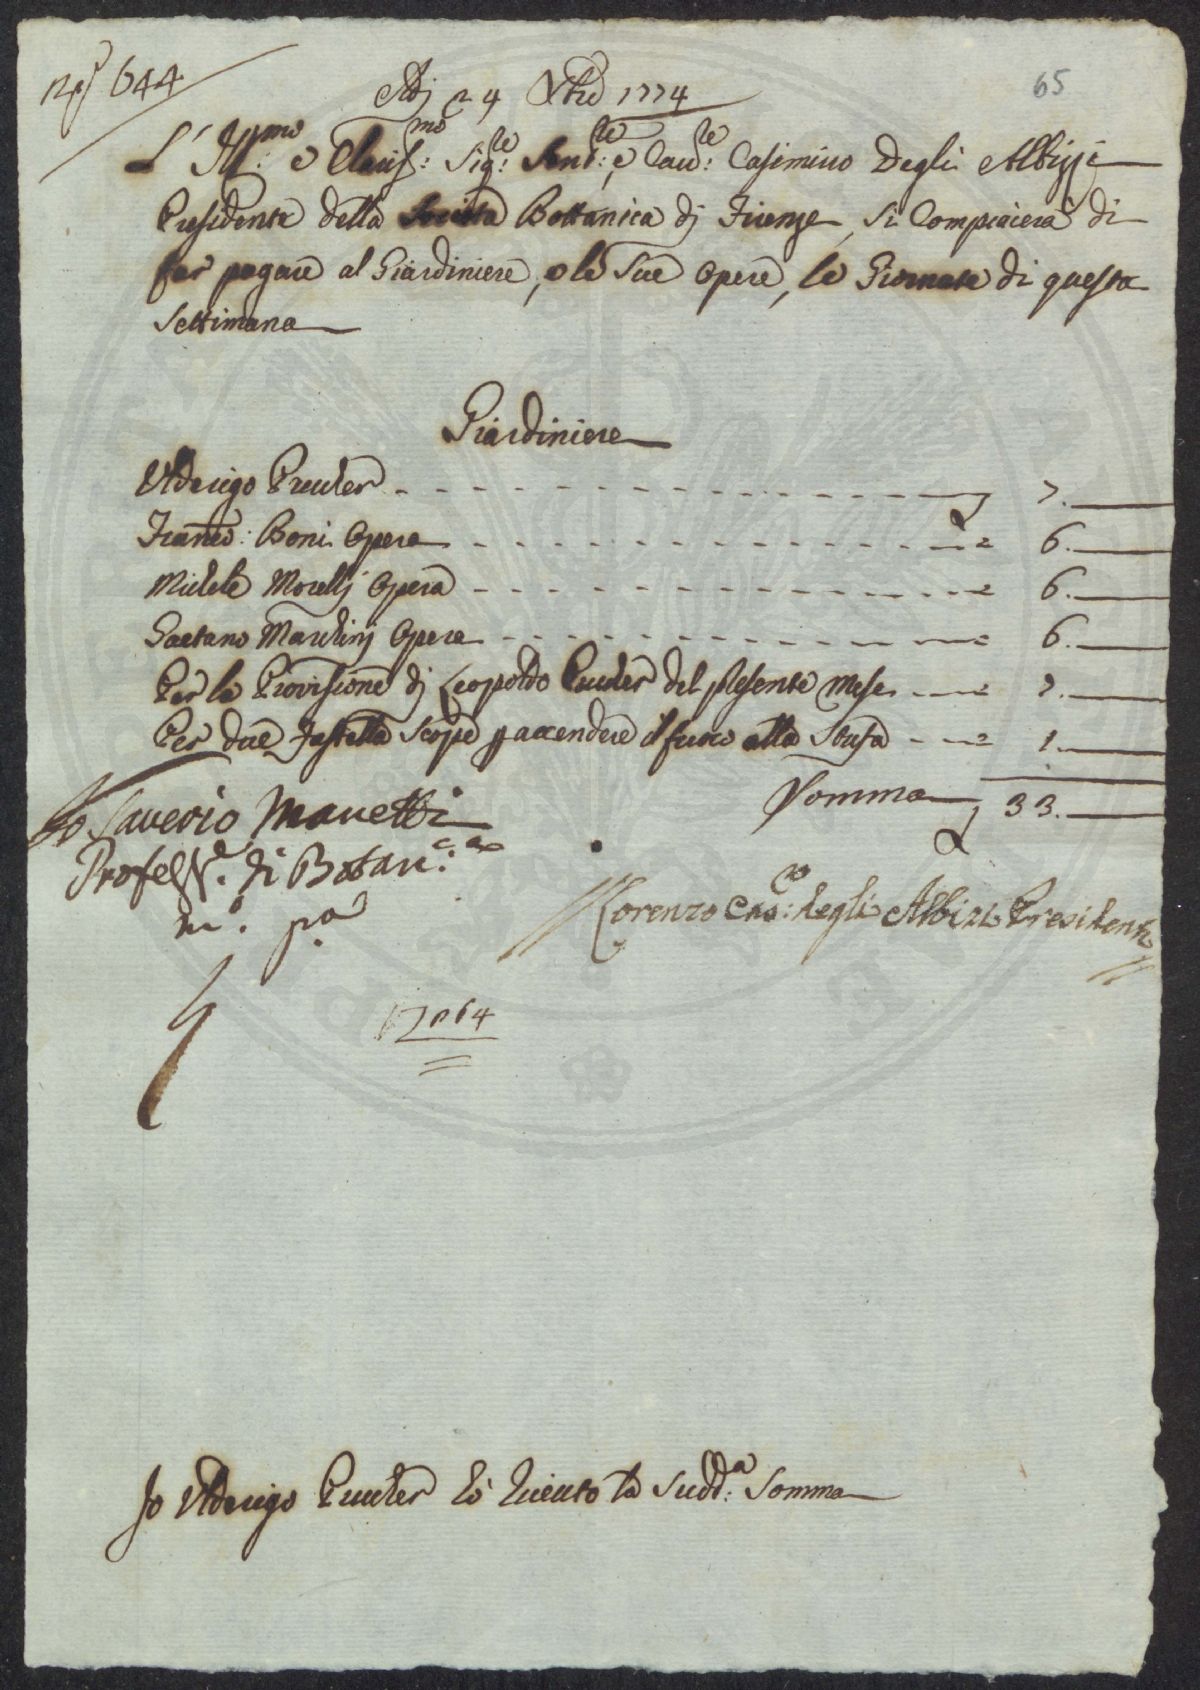 N.° 644
65
Adj 24 Xbre 1774
L'Ill.mo e Clariss.mo Sig.re Send.re e Cav.re Casimirro Degli Albizzi
Presidente della Società Bottanica dj Firenze, Si Compiacerà di
far pagare al Giardiniere, e le Sue Opere, le Giornate di questa
Settimana
Giardiniere
Uderigo Prucker 7.
Franco: Boni Opera 6.
Michele Morellj Opera 6.
Gaetano Marchinj Opera 6.
Per la Provisione dj Leopoldo Prucker del presente Mese 7.
Per due Fastella Scope p accendere il fuoco alla Stufa 1.
Somma 33.
Io Saverio Manetti
Profess.e di Botan.ca
m.o p.a
Lorenzo Cas.o degli Albizi Presidente
Io Uderigo Prucker ò riceuto la Sudd.a Somma